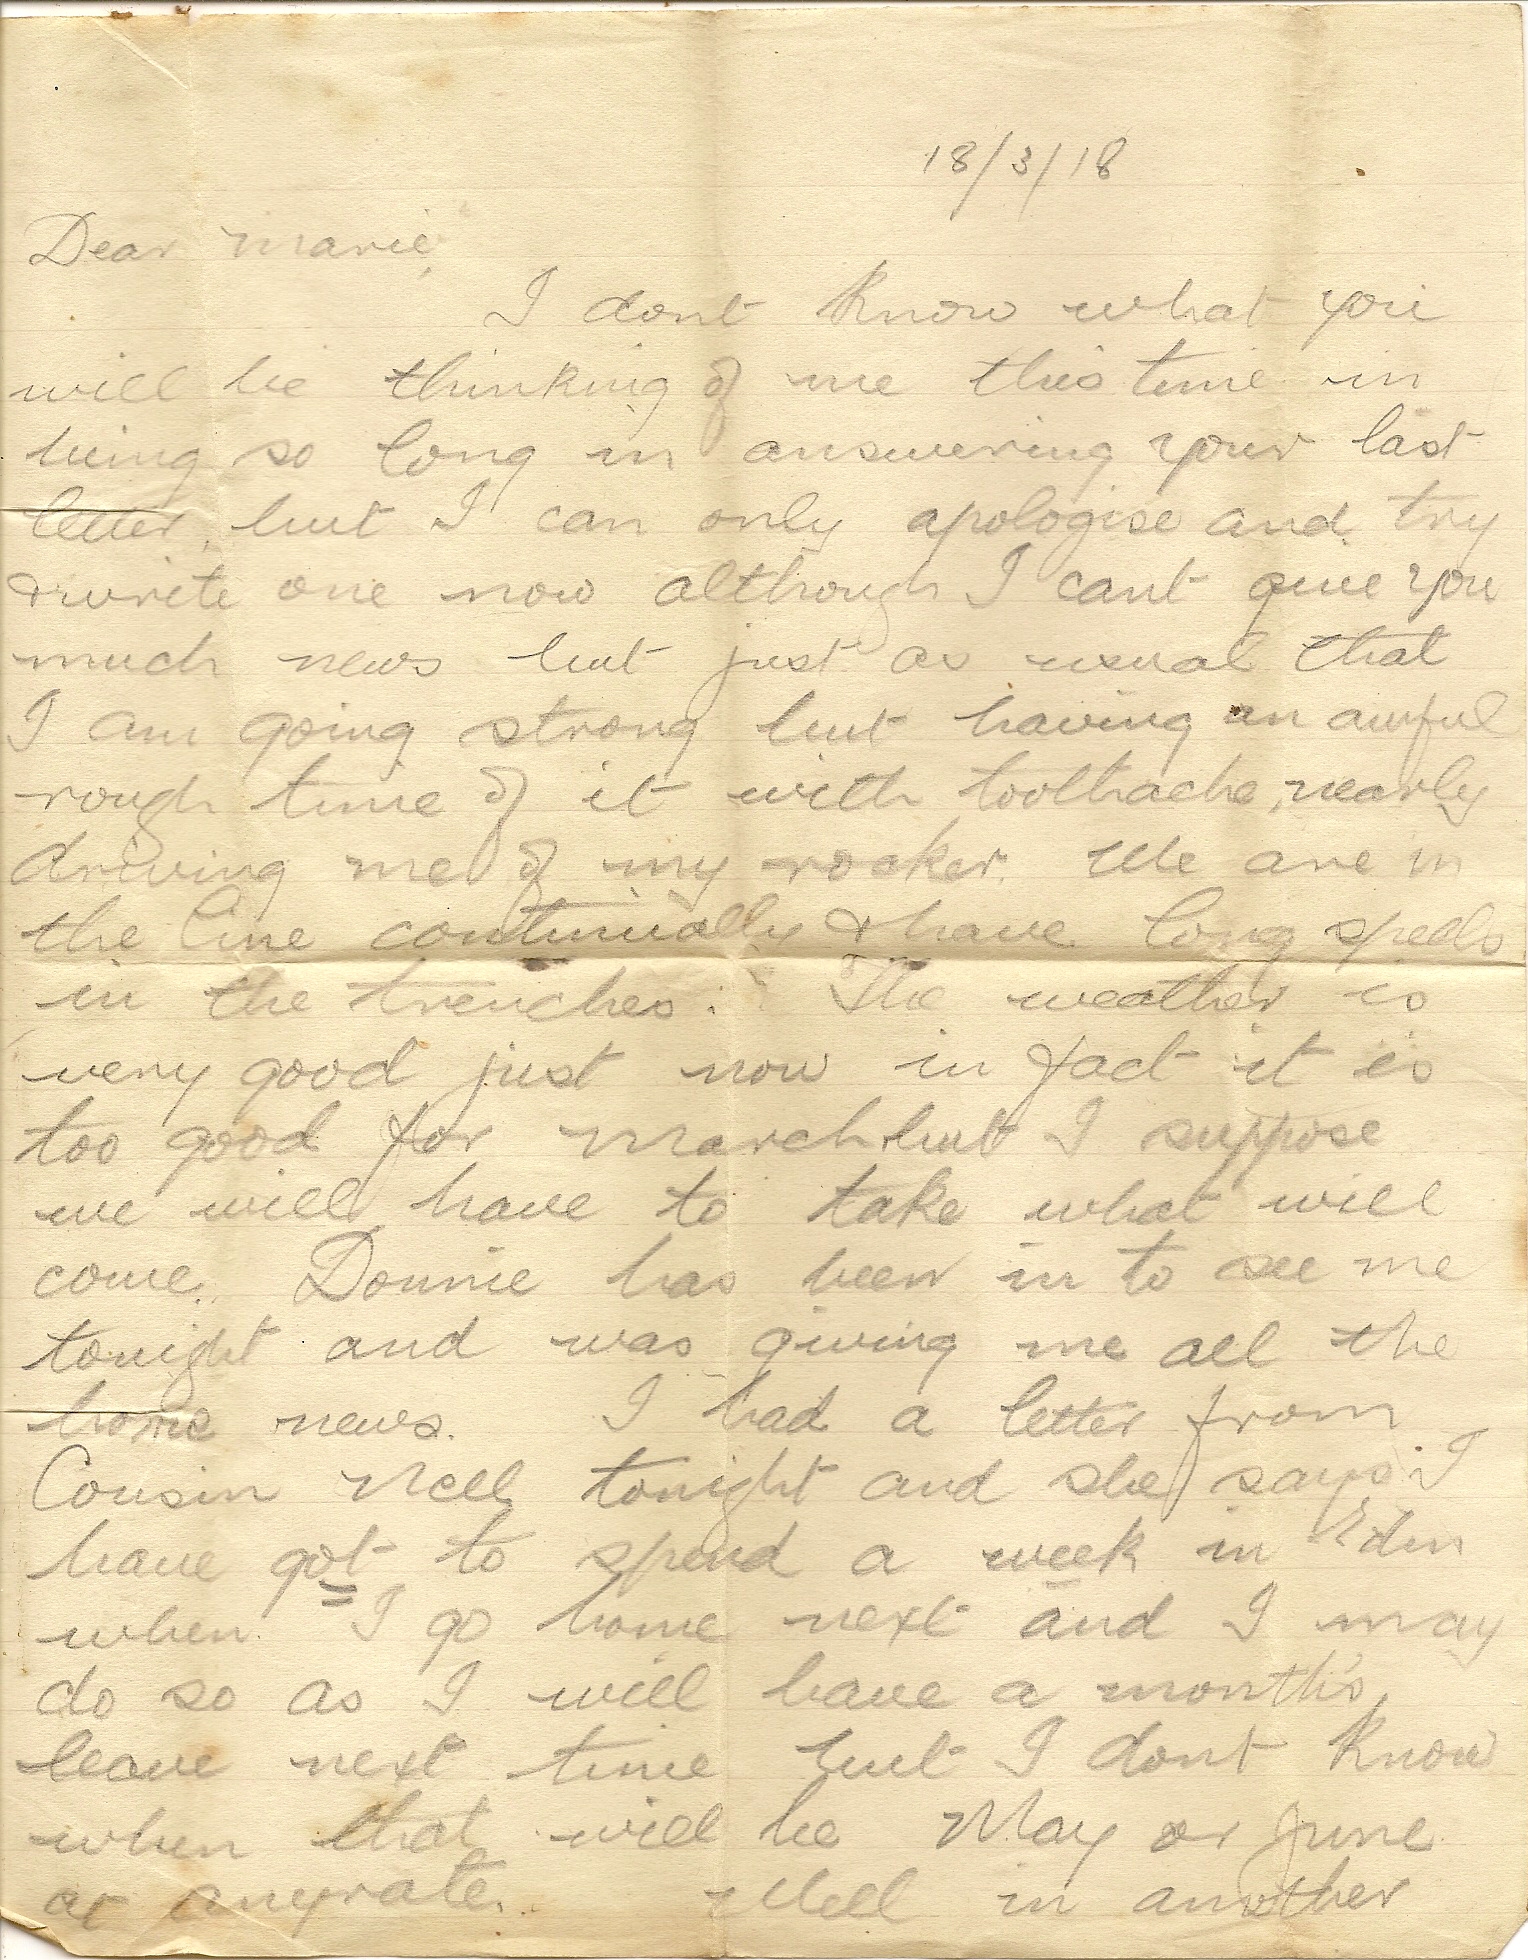 18/3/18
Dear Marie,
I dont know what you
will be thinking of me this time in
being so long in answering your last
letter, but I can only apologise and try
& write one now although I cant give you
much news but just as usual that
I am going strong but having an awful
rough time of it with toothache, nearly
driving me of my rocker. We are in
the line continually & have long spells
in the trenches. The weather is
very good just now in fact it is
too good for March but I suppose
we will have to take what will
come. Donnie has been in to see me
tonight and was giving me all the
home news. I had a letter from
Cousin Nell tonight and she says I
have got to spend a week in Edin
when I go home next and I may
do so as I will have a month's
leave next time but I dont know
when that will be May or June
at anyrate. Well in another